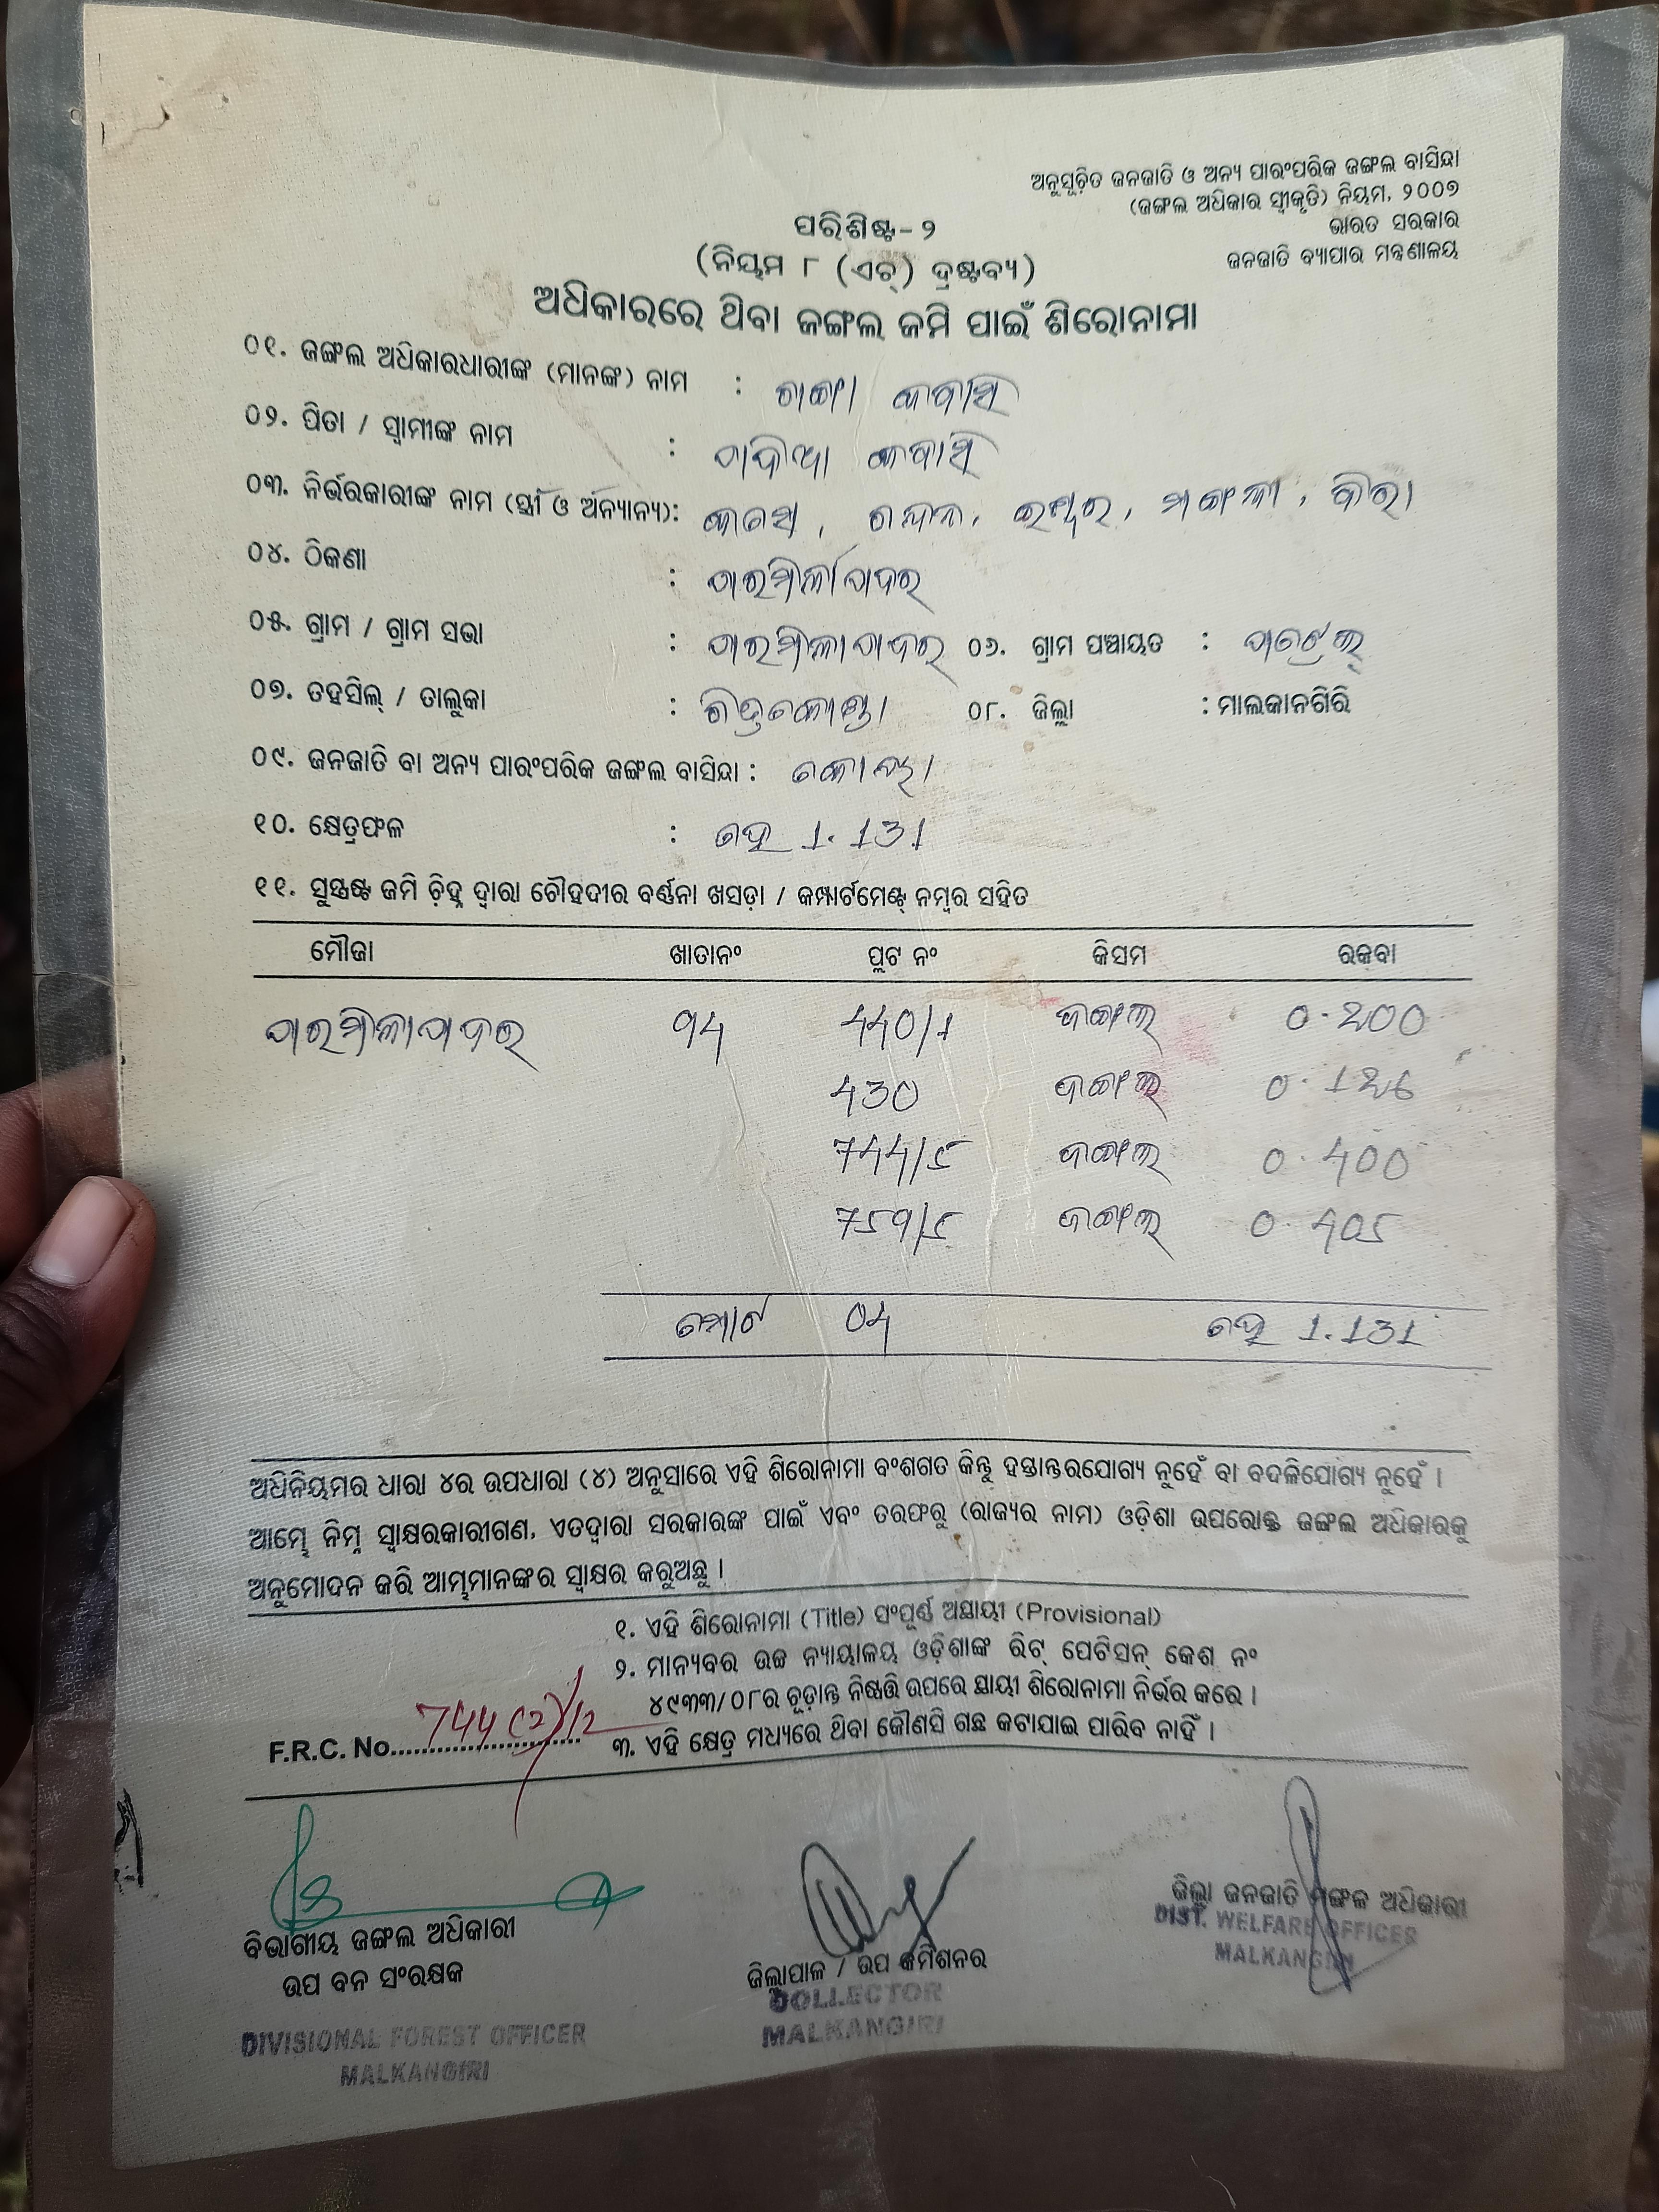 ଅନୁସୂଚିତ ଜନଜାତି ଓ ଅନ୍ୟ ପାରଂପରିକ ଜଙ୍ଗଲ ବାସିନ୍ଦା
(ଜଙ୍ଗଲ ଅଧିକାର ସ୍ୱୀକୃତି) ନିୟମ, ୨୦୦୭
ଭାରତ ସରକାର
ଜନଜାତି ବ୍ୟାପାର ମନ୍ତ୍ରଣାଳୟ
ପରିଶିଷ୍ଟ-୨
(ନିୟମ ୮ (ଏଚ୍) ଦ୍ରଷ୍ଟବ୍ୟ)
ଅଧିକାରରେ ଥିବା ଜଙ୍ଗଲ ଜମି ପାଇଁ ଶିରୋନାମା
୦୧. ଜଙ୍ଗଲ ଅଧିକାରଧାରୀଙ୍କ (ମାନଙ୍କ) ନାମ :
୦୨. ପିତା / ସ୍ୱାମୀଙ୍କ ନାମ :
୦୩. ନିର୍ଭରକାରୀଙ୍କ ନାମ (ସ୍ତ୍ରୀ ଓ ଅନ୍ୟାନ୍ୟ):
୦୪. ଠିକଣା :
୦୫. ଗ୍ରାମ / ଗ୍ରାମ ସଭା : ୦୬. ଗ୍ରାମ ପଞ୍ଚାୟତ :
୦୭. ତହସିଲ୍ / ତାଲୁକା : ୦୮. ଜିଲ୍ଲା : ମାଲକାନଗିରି
୦୯. ଜନଜାତି ବା ଅନ୍ୟ ପାରଂପରିକ ଜଙ୍ଗଲ ବାସିନ୍ଦା : କୋୟା
୧୦. କ୍ଷେତ୍ରଫଳ : ହେ 1.131
୧୧. ସୁସ୍ପଷ୍ଟ ଜମି ଚିହ୍ନ ଦ୍ୱାରା ଚୌହଦୀର ବର୍ଣ୍ଣନା ଖସଡ଼ା / କମ୍ପାର୍ଟମେଣ୍ଟ୍ ନମ୍ବର ସହିତ
ମୌଜା ଖାତାନଂ ପ୍ଲଟ ନଂ କିସମ ରକବା
440/1 ଜଙ୍ଗଲ 0.200
430 ଜଙ୍ଗଲ 0.126
744/5 ଜଙ୍ଗଲ 0.400
ଜଙ୍ଗଲ 0.405
ମୋଟ 04 ହେ 1.131
ଅଧିନିୟମର ଧାରା ୪ର ଉପଧାରା (୪) ଅନୁସାରେ ଏହି ଶିରୋନାମା ବଂଶଗତ କିନ୍ତୁ ହସ୍ତାନ୍ତରଯୋଗ୍ୟ ନୁହେଁ ବା ବଦଳିଯୋଗ୍ୟ ନୁହେଁ ।
ଆମ୍ଭେ ନିମ୍ନ ସ୍ୱାକ୍ଷରକାରୀଗଣ, ଏତଦ୍ୱାରା ସରକାରଙ୍କ ପାଇଁ ଏବଂ ତରଫରୁ (ରାଜ୍ୟର ନାମ) ଓଡ଼ିଶା ଉପରୋକ୍ତ ଜଙ୍ଗଲ ଅଧିକାରକୁ
ଅନୁମୋଦନ କରି ଆମ୍ଭମାନଙ୍କର ସ୍ୱାକ୍ଷର କରୁଅଛୁ ।
୧. ଏହି ଶିରୋନାମା (Title) ସଂପୂର୍ଣ୍ଣ ଅସ୍ଥାୟୀ (Provisional)
୨. ମାନ୍ୟବର ଉଚ୍ଚ ନ୍ୟାୟାଳୟ ଓଡ଼ିଶାଙ୍କ ରିଟ୍ ପେଟିସନ୍ କେଶ ନଂ
୪୯୩୩/୦୮ର ଚୂଡ଼ାନ୍ତ ନିଷ୍ପତ୍ତି ଉପରେ ସ୍ଥାୟୀ ଶିରୋନାମା ନିର୍ଭର କରେ ।
୩. ଏହି କ୍ଷେତ୍ର ମଧ୍ୟରେ ଥିବା କୌଣସି ଗଛ କଟାଯାଇ ପାରିବ ନାହିଁ ।
F.R.C. No. 744(2)/12
ବିଭାଗୀୟ ଜଙ୍ଗଲ ଅଧିକାରୀ
ଉପ ବନ ସଂରକ୍ଷକ
DIVISIONAL FOREST OFFICER
MALKANGIRI
ଜିଲ୍ଲାପାଳ / ଉପ କମିଶନର
COLLECTOR
MALKANGIRI
ଜିଲ୍ଲା ଜନଜାତି ମଙ୍ଗଳ ଅଧିକାରୀ
DIST. WELFARE OFFICER
MALKANGIRI